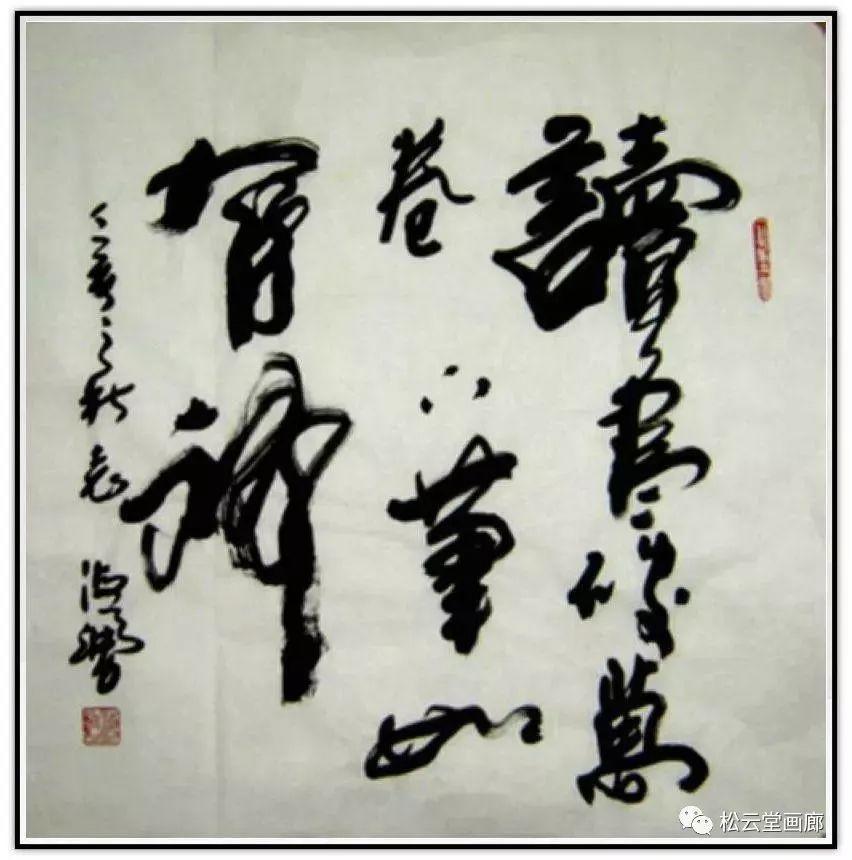 讀書破萬
卷下筆如
有神
之秋
松云堂画廊